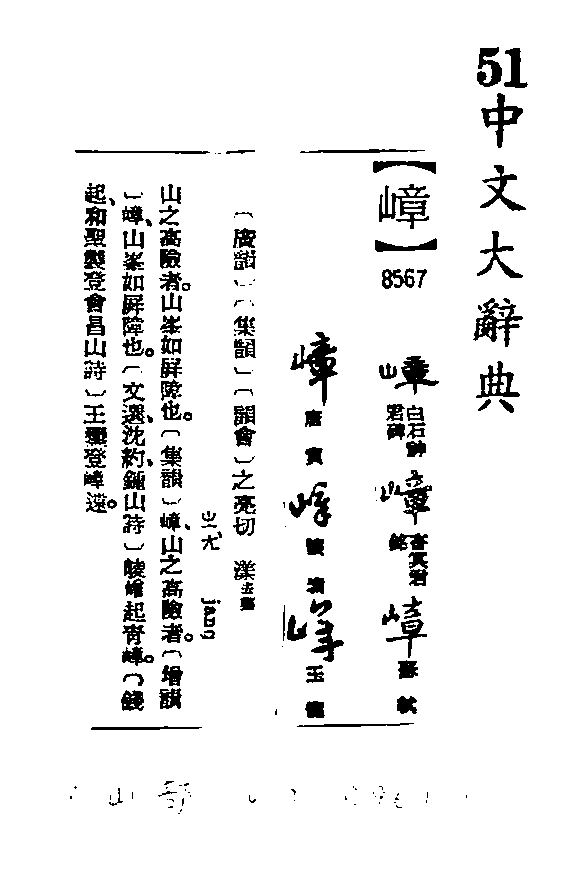 51
中文大辭典
【嶂】
8567
嶂
白石神君碑
嶂
嶂
蘇軾
嶂
唐寅
嶂
嶂
〔廣韻〕〔集韻〕〔韻會〕之亮切 漾去聲
ㄓㄤˋ jang
山之高險者。山峯如屏障也。〔集韻〕嶂、山之高險者。〔增韻
〕嶂、山峯如屏障也。〔文選、沈約、鍾山詩〕崚嶒起青嶂。〔錢
起、和聖製登會昌山詩〕王璽登嶂遠。
山部